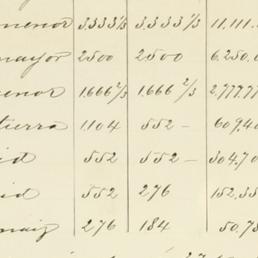 menor 3.333⅓ 3.333⅓ 11.111.
mayor 2500 2500 6.250.0
enor 1.666⅔ 1.666⅔ 2.777.77
tierra 1.104 552 — 609.40
id 552 552 — 304.70
id 552 276 152.35
maiz 276 184 50.78